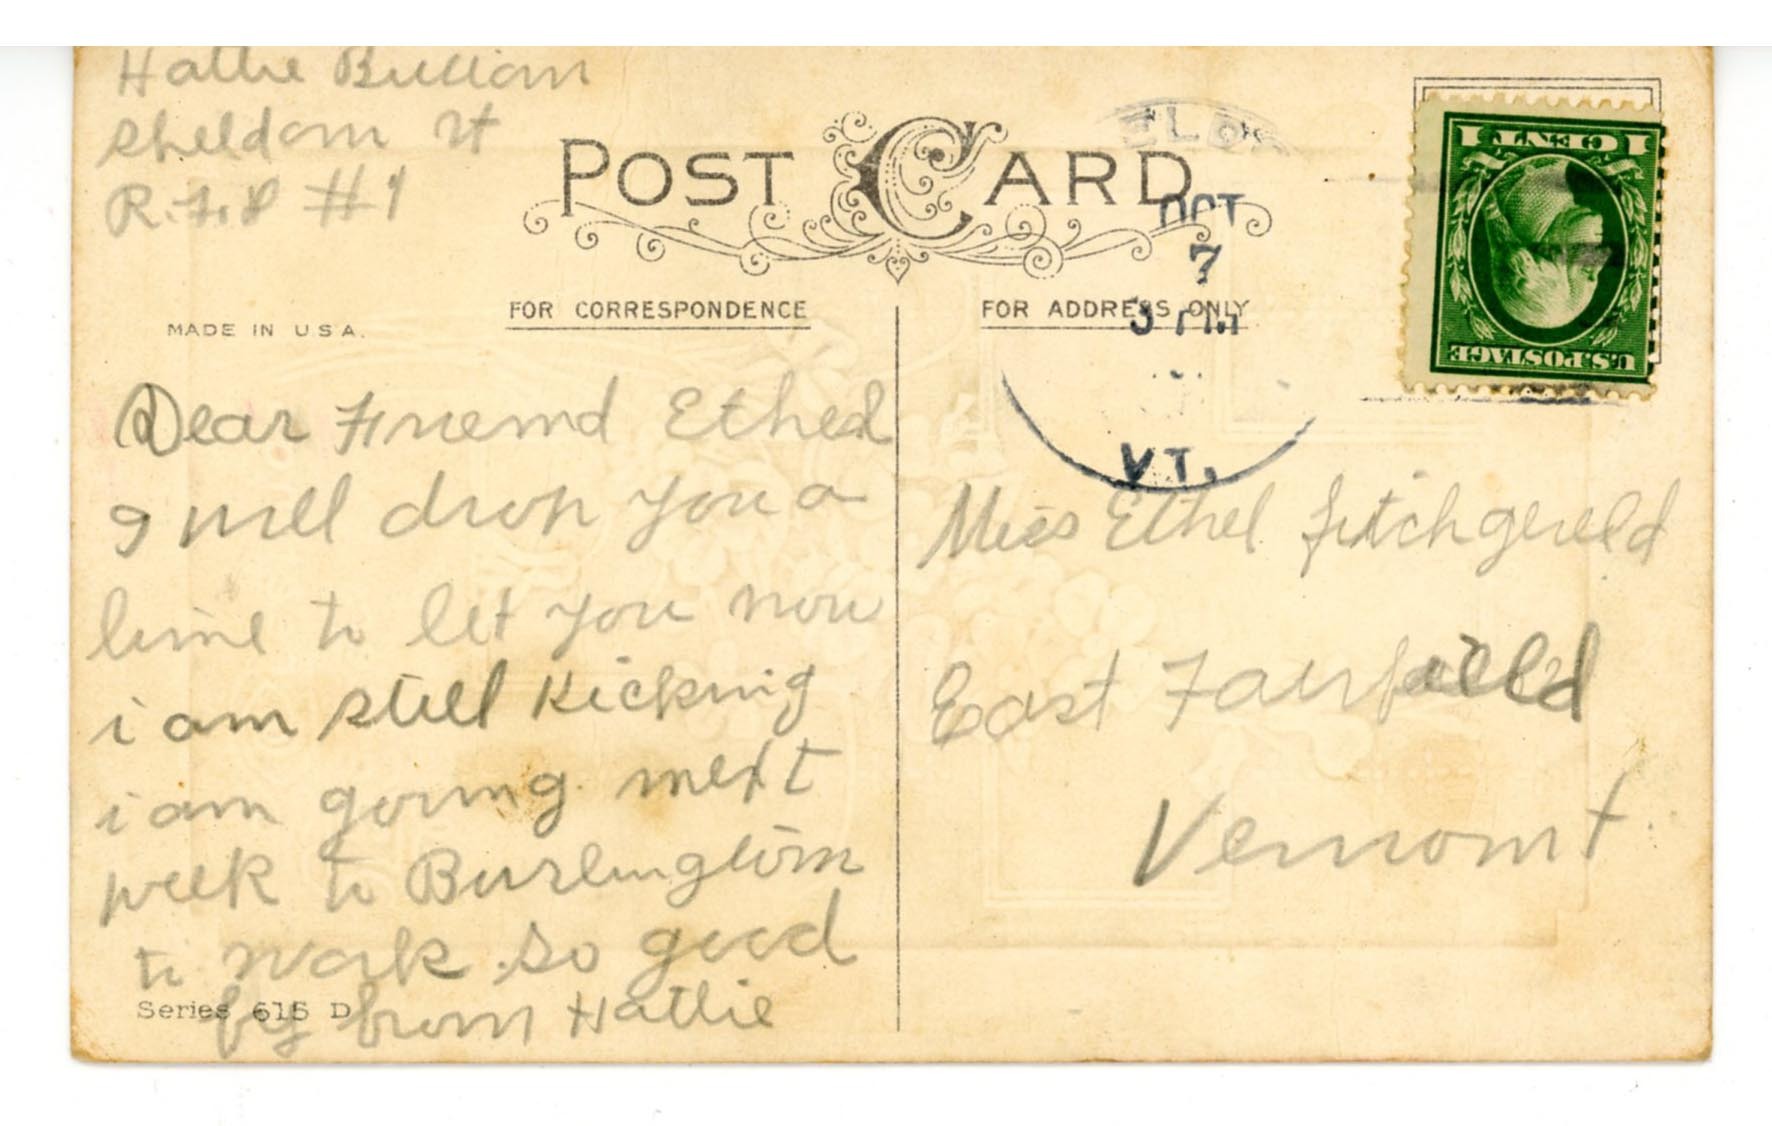 Hattie Bullian
Sheldon Vt
R.F.D #1
POST CARD
ELDO
OCT
7
PM
VT.
1 CENT 1
U.S. POSTAGE
MADE IN U S A.
FOR CORRESPONDENCE
FOR ADDRESS ONLY
Dear Friend Ethel
I will drop you a
line to let you now
i am still kicking
i am going next
week to Burlington
to work so good
by from Hattie
Series 615 D
Miss Ethel fitchgereld
East Fairfield
Vermont